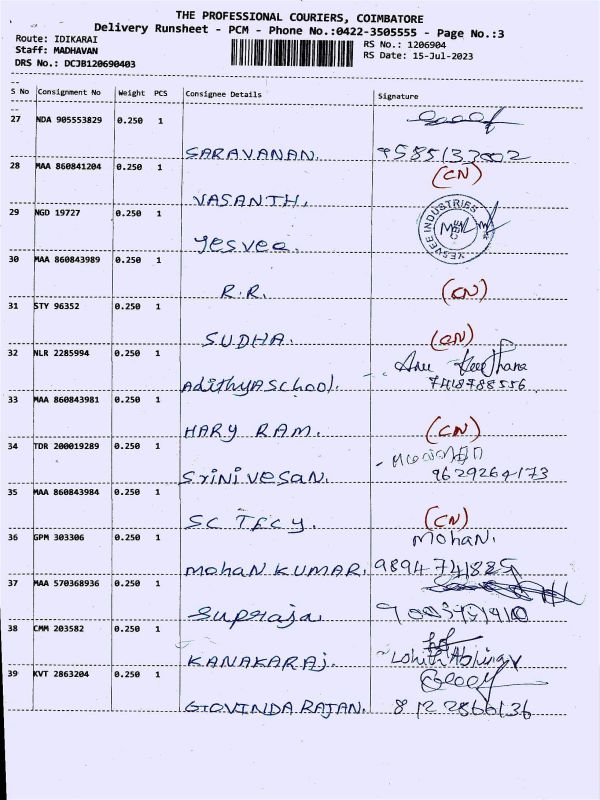 THE PROFESSIONAL COURIERS, COIMBATORE
Delivery Runsheet - PCM - Phone No.:0422-3505555 - Page No.:3
Route: IDIKARAI
Staff: MADHAVAN
DRS No.: DCJB120690403
RS No.: 1206904
RS Date: 15-Jul-2023
S No Consignment No Weight PCS Consignee Details Signature
27 NDA 905553829 0.250 1
SARAVANAN. 9585133002
28 MAA 860841204 0.250 1 (CN)
VASANTH.
29 NGD 19727 0.250 1 YESVEE INDUSTRIES
Yesvee.
30 MAA 860843989 0.250 1
R.R. (CN)
31 STY 96352 0.250 1
SUDHA. (CN)
32 NLR 2285994 0.250 1 Anu Keerthana
Adithya School. 7418788556
33 MAA 860843981 0.250 1
HARY RAM. (CN)
34 TDR 200019289 0.250 1
Srinivesan. 9629264173
35 MAA 860843984 0.250 1
SC TECY. (CN)
36 GPM 303306 0.250 1 Mohan.
Mohan KUMAR. 9894741889
37 MAA 570368936 0.250 1
Supraja
38 CMM 203582 0.250 1
KANAKARAj. Lohith
39 KVT 2863204 0.250 1
GIOVINDA RAJAN. 8122866136